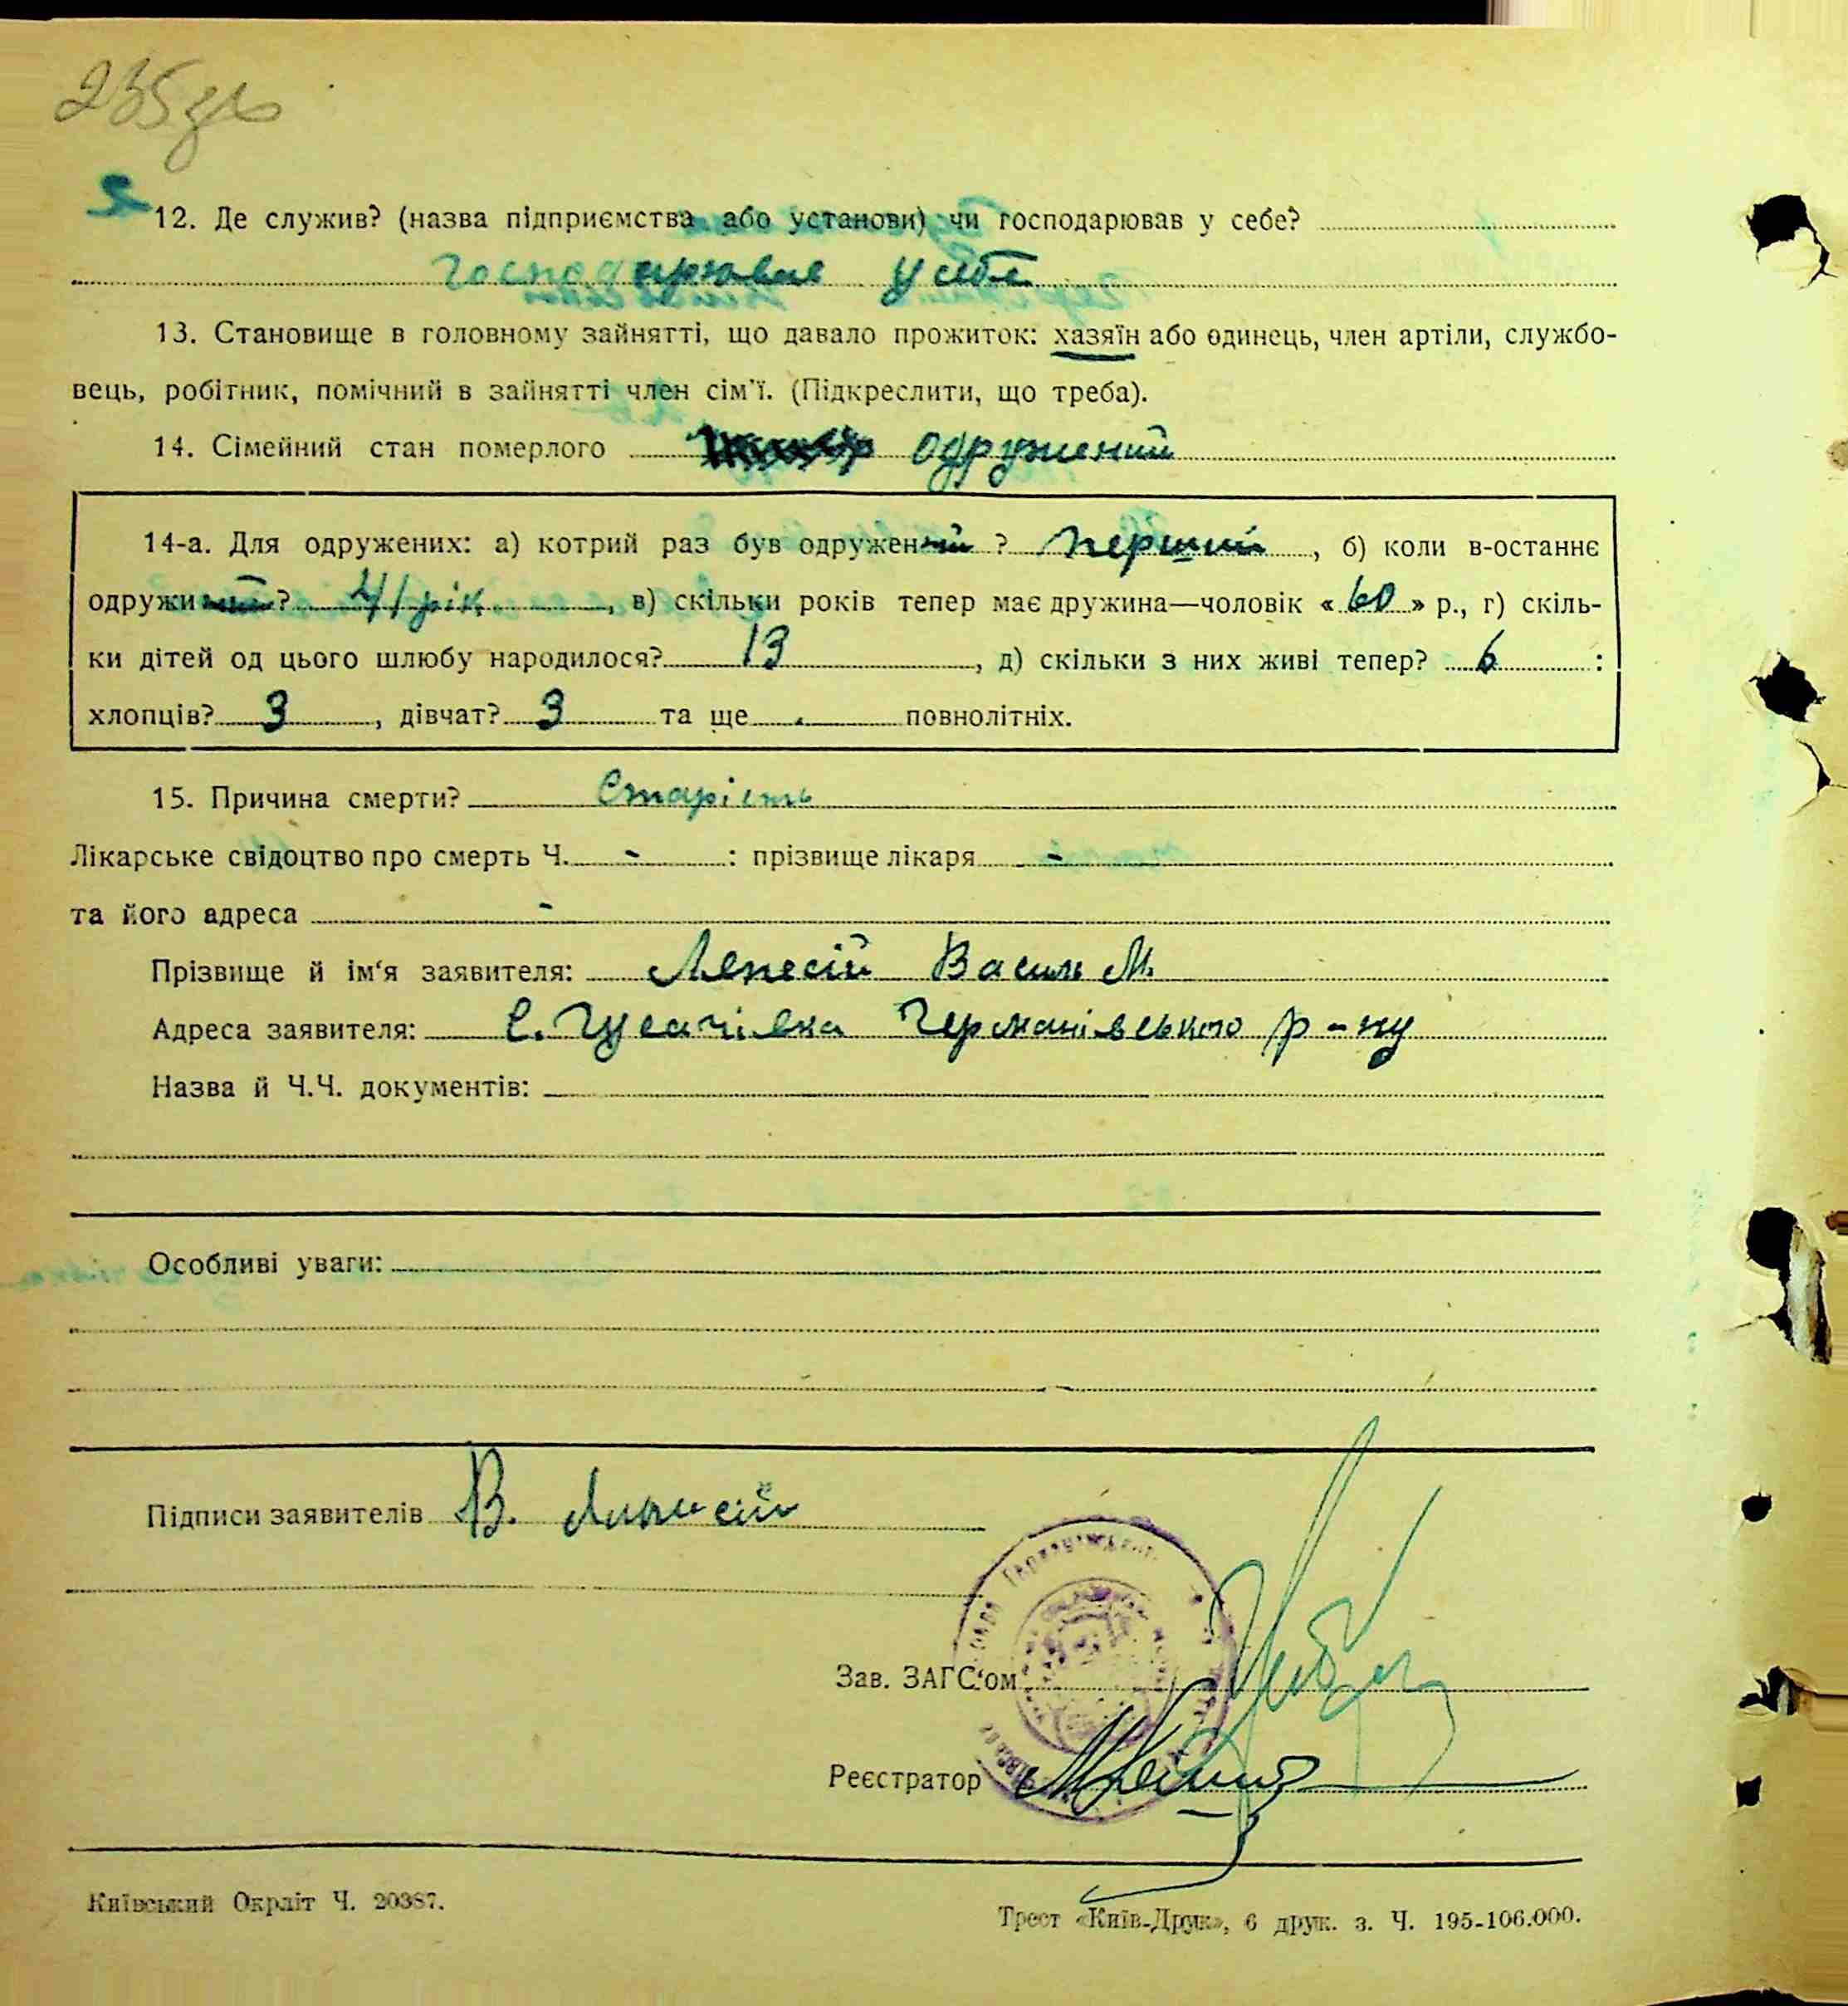 235 зв
12. Де служив? (назва підприємства або установи) чи господарював у себе?
господарював у себе
13. Становище в головному зайнятті, що давало прожиток: хазяїн або одинець, член артіли, службо-
вець, робітник, помічний в зайнятті член сім'ї. (Підкреслити, що треба).
14. Сімейний стан померлого одружений
14-а. Для одружених: а) котрий раз був одружений ? перший, б) коли в-останнє
одружи ? 41 рік, в) скільки років тепер має дружина—чоловік «60» р., г) скіль-
ки дітей од цього шлюбу народилося? 13, д) скільки з них живі тепер? 6 :
хлопців? 3, дівчат? 3 та ще - повнолітніх.
15. Причина смерти? Старість
Лікарське свідоцтво про смерть Ч. - : прізвище лікаря -
та його адреса -
Прізвище й ім'я заявителя: Лепесій Василь М.
Адреса заявителя: с. Гусачівка Германівського р-ну
Назва й Ч.Ч. документів:
Особливі уваги:
Підписи заявителів В.
Зав. ЗАГС'ом
Реєстратор
Київський Окрліт Ч. 20387.
Трест «Київ-Друк», 6 друк. з. Ч. 195-106.000.